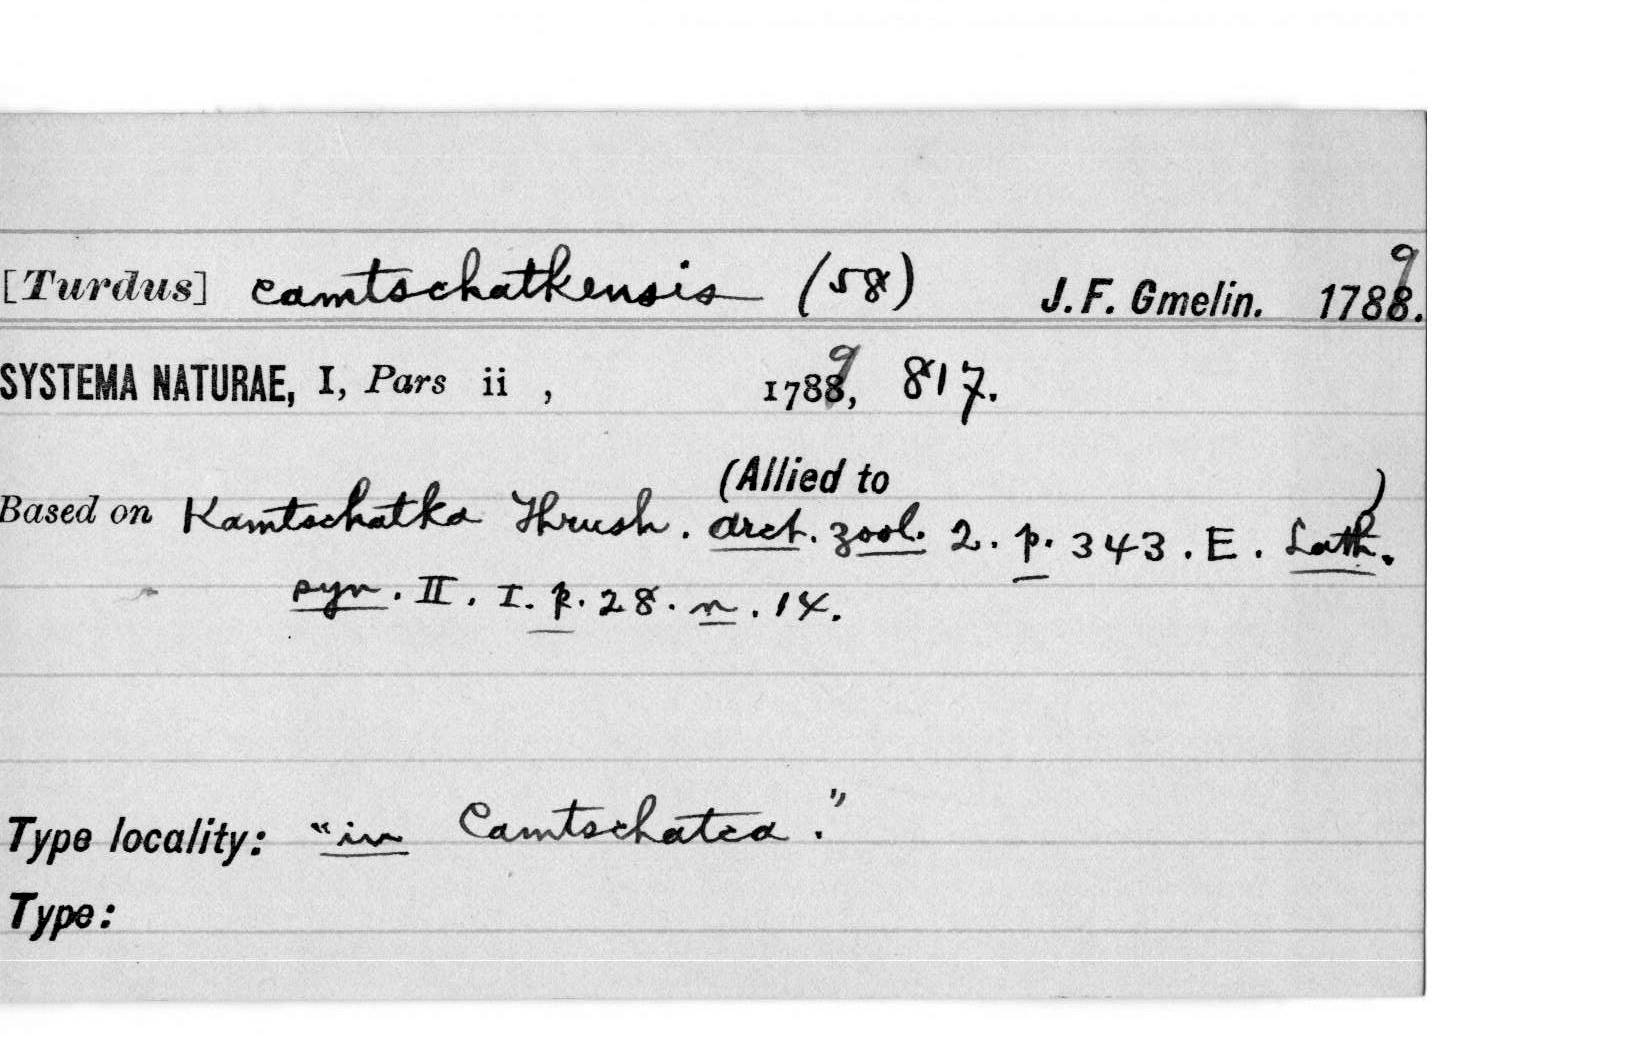 [Turdus] camtschatkensis (58) J. F. Gmelin. 1789.
SYSTEMA NATURAE, I, Pars ii , 1789, 817.
(Allied to )
Based on Kamtschatka Thrush. arct. zool. 2. p. 343. E. Lath.
syn. II. I. p. 28. n. 14.
Type locality: "in Camtschatca."
Type: